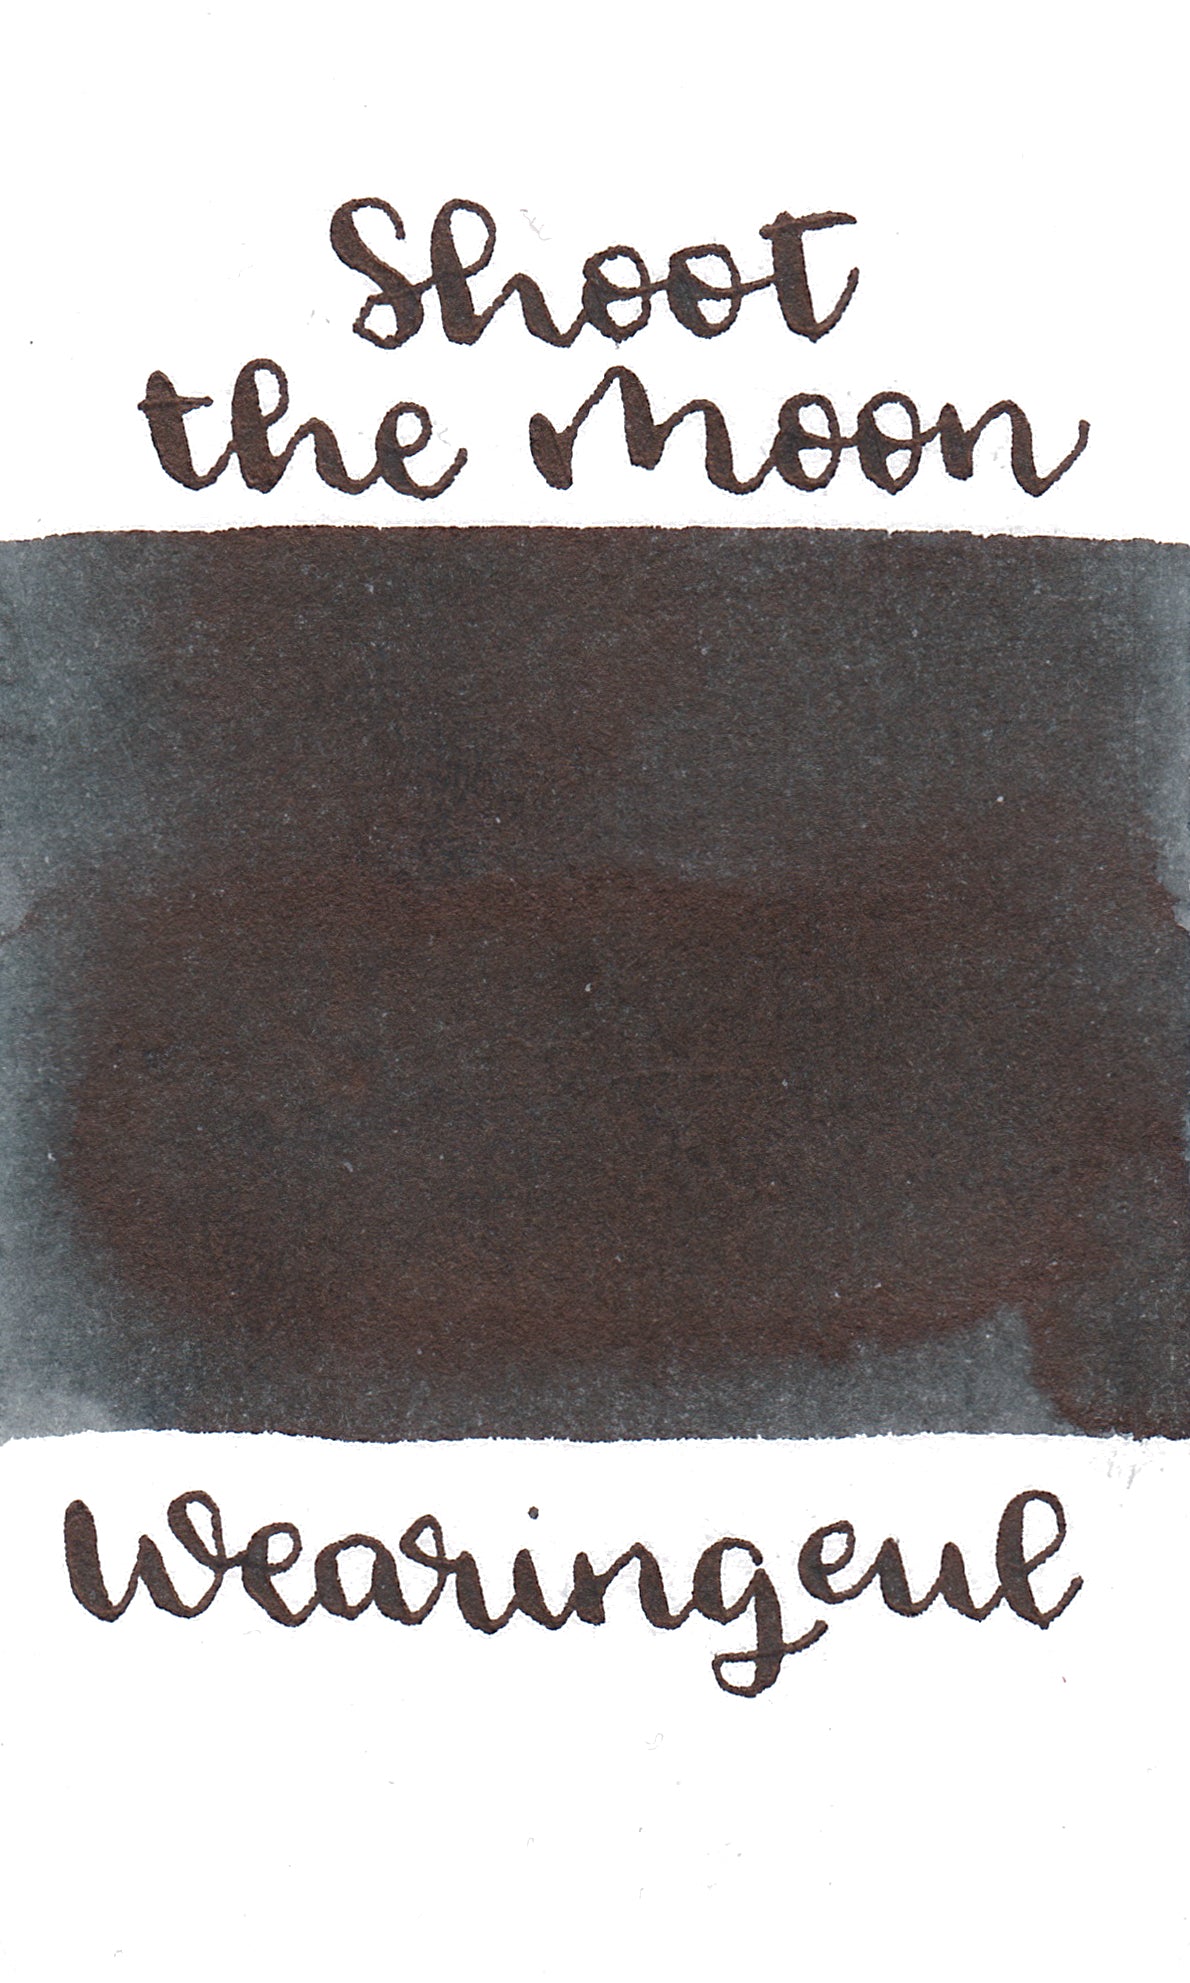 Shoot
the Moon
Wearingeul